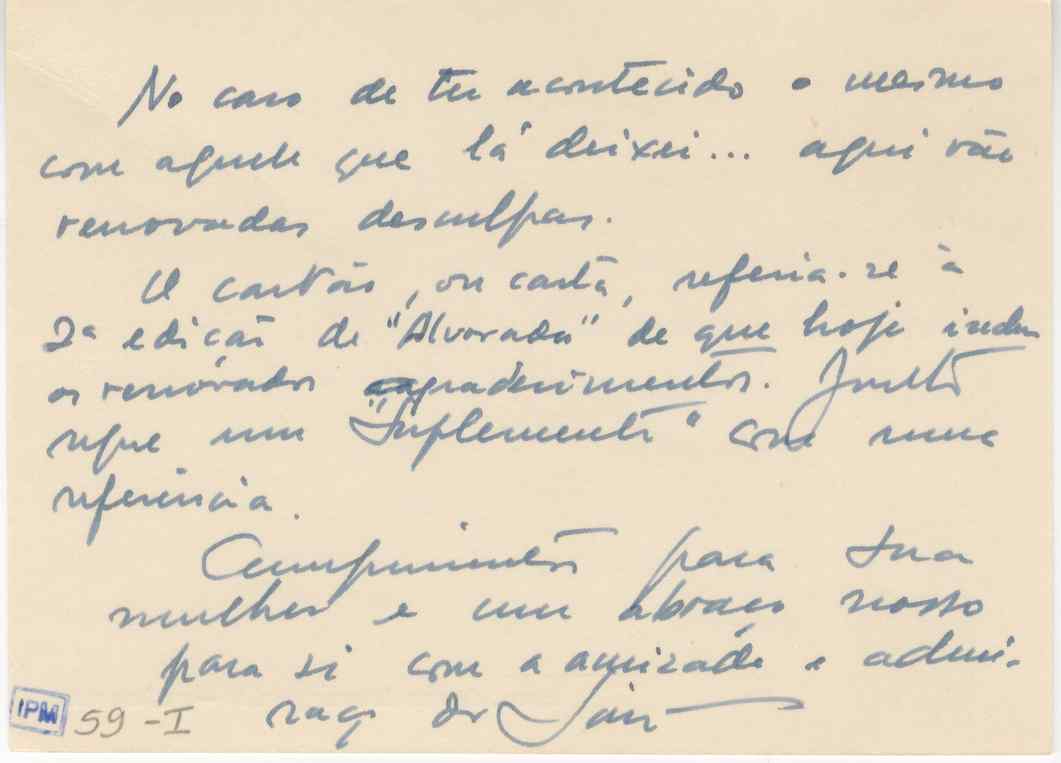 No caso de ter acontecido o mesmo
com aquele que lá deixei... aqui vão
renovadas desculpas.
O cartão, ou carta, referia-se à
2ª edição de "Alvorada" de que hoje
os renovados agradecimentos. Junto
segue um "Suplemento" com uma
referência.
Cumprimentos para sua
mulher e um abraço nosso
para si com a amizade e admi-
raçõ do
IPM 59-I